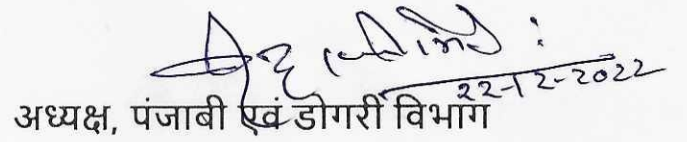 22-12-2022
अध्यक्ष, पंजाबी एवं डोगरी विभाग